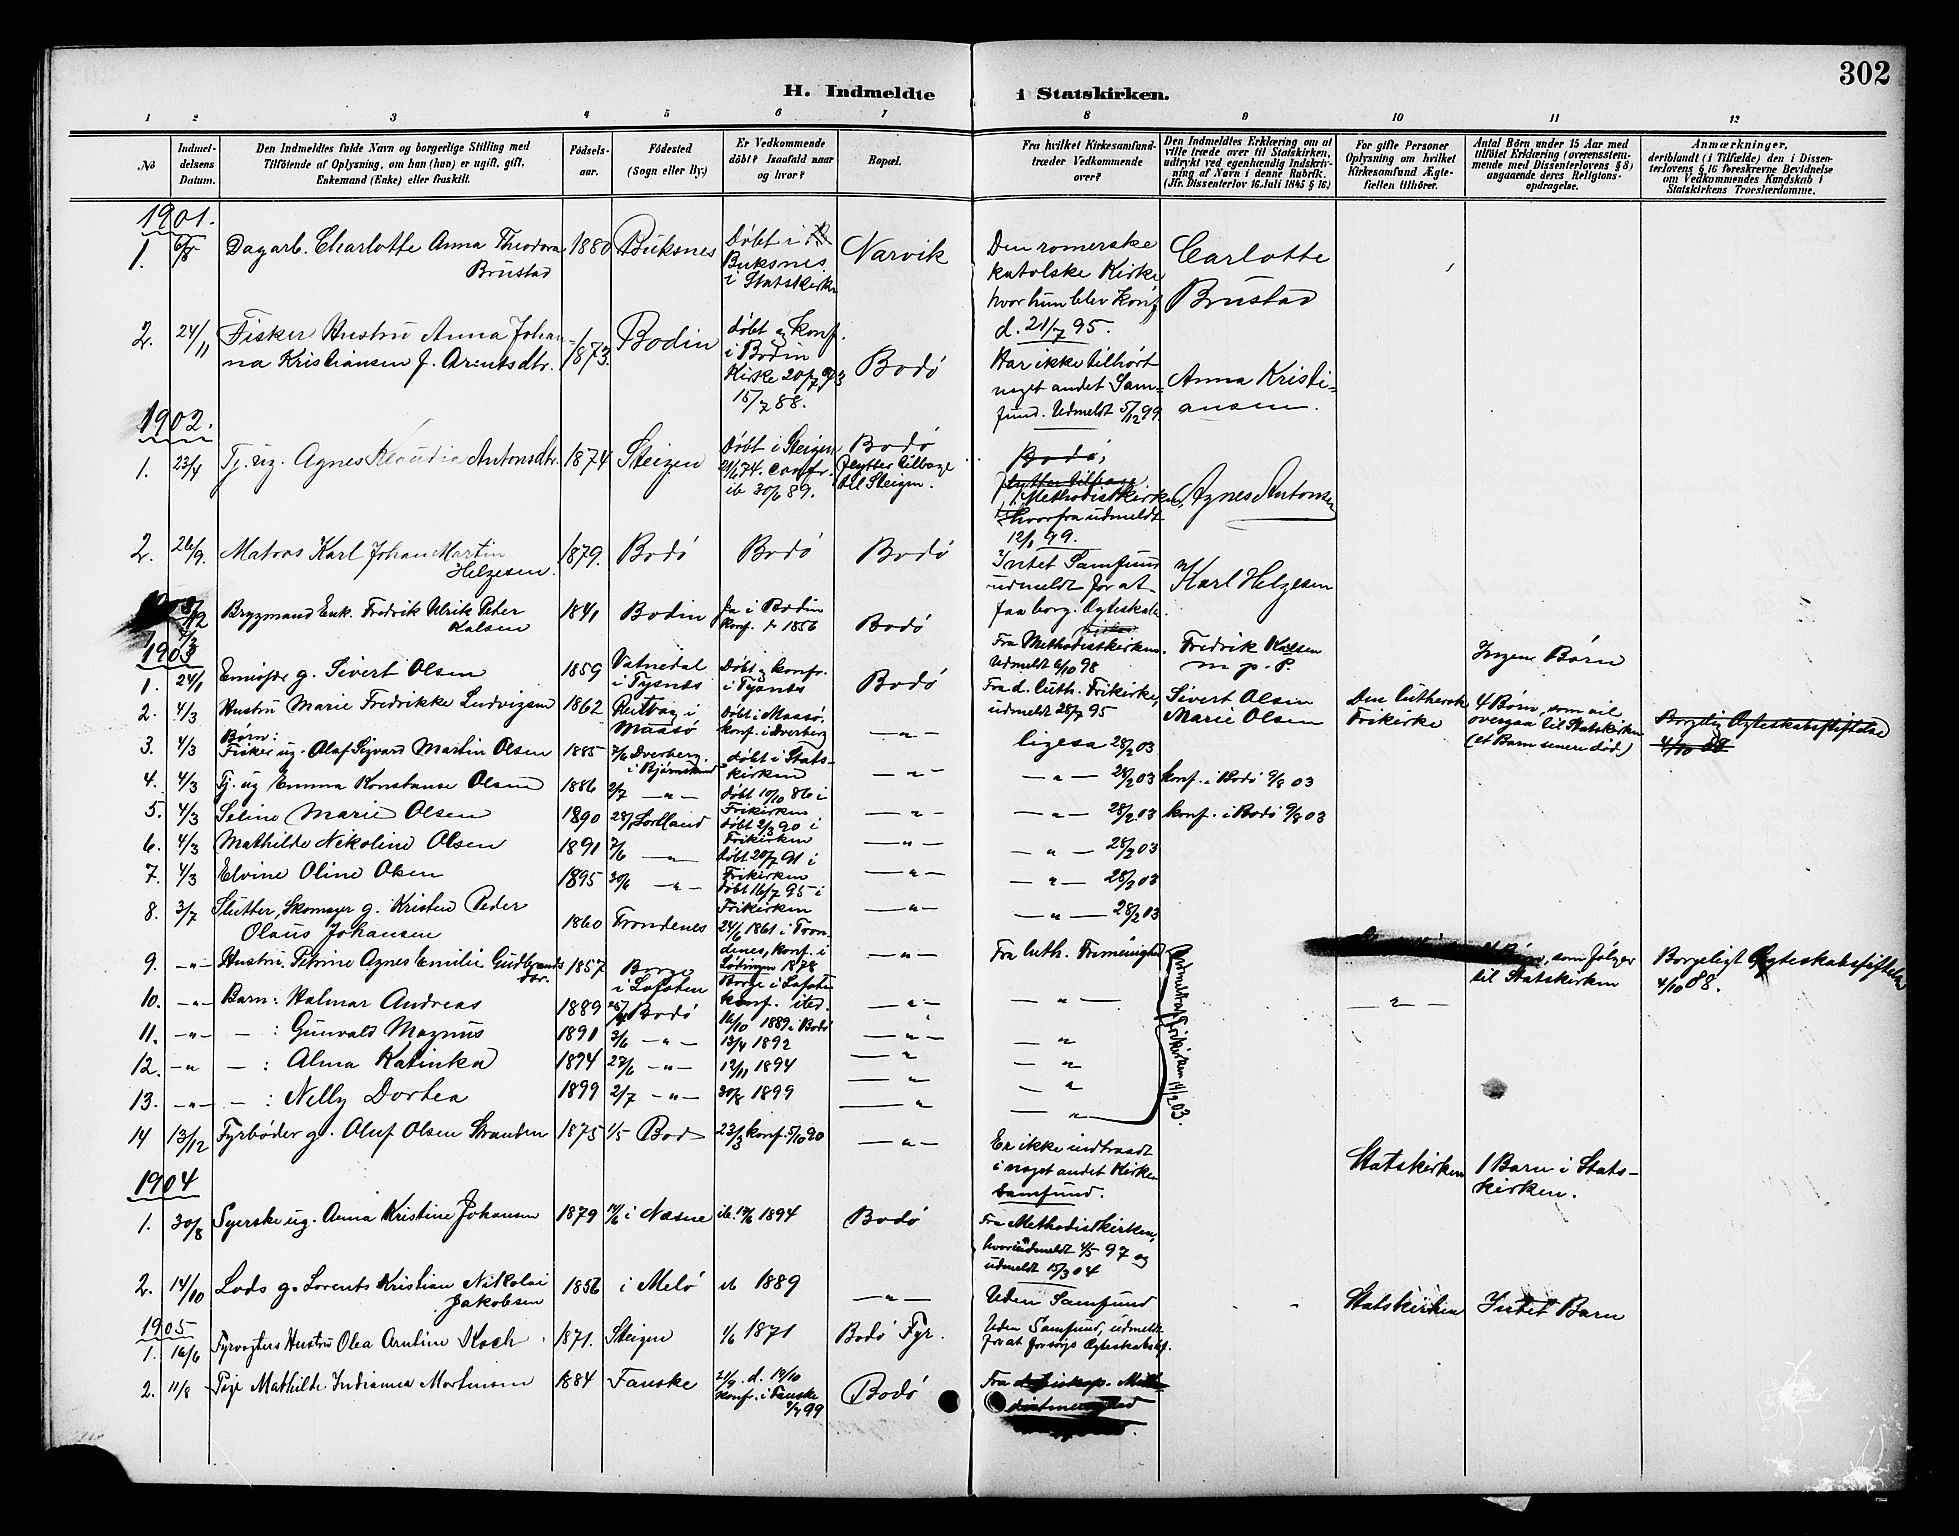 302
H. Indmeldte i Statskirken.
1 2 3 4 5 6 7 8 9 10 11 12
No
Indmeldelsens Datum.
Den Indmeldtes fulde Navn og borgerlige Stilling med
Tilföiende af Oplysning, om han (hun) er ugift, gift,
Enkemand (Enke) eller fraskilt.
Födselsaar.
Födested
(Sogn eller By.)
Er Vedkommende
döbt? Isaafald naar
og hvor?
Bopæl.
Fra hvilket Kirkesamfund
træder Vedkommende
over?
Den Indmeldtes Erklæring om at
ville træde over til Statskirken,
udtrykt ved egenhændig Indskrivning
af Navn i denne Rubrik.
(Jfr. Dissenterlov 16 Juli 1845 § 16.)
For gifte Personer
Oplysning om hvilket
Kirkesamfund Ægtefællen
tilhörer.
Antal Börn under 15 Aar med
tilföiet Erklæring (overensstemmende
med Dissenterlovens § 8)
angaaende deres Religionsopdragelse.
Anmærkninger,
deriblandt (i Tilfælde) den i Dissenterlovens
§ 16 foreskrevne Bevidnelse
om Vedkommendes Kundskab i
Statskirkens Troeslærdomme.
1901.
1. 6/8 Dagarb. Charlotte Anna Theodora Brustad 1880 Buksnes Döbt i Buksnes i Statskirken Narvik Den romerske katolske Kirke, hvor hun blev konf. d. 21/7 95. Carlotte Brustad
2. 24/11 Fisker Hustru Anna Johanna Kristiansen f. Arentsdtr. 1873. Bodin döbt og konf. i Bodin Kirke 20/7 93 15/7 88. Bodö Har ikke tilhört noget andet Samfund. Udmeldt 5/12 99 Anna Kristiansen.
1902.
1. 23/4 Tj. ug. Agnes Klaudia Antonsdtr. 1874 Steigen Döbt i Steigen 21/6 74. confr. ib 30/6 89. Bodö flytter tilbage til Steigen. Bodö, flytter tilbage Methodistkirken, hvorfra udmeldt 12/1 99. Agnes Antonsen
2. 26/9. Matros Karl Johan Martin Helgesen. 1879. Bodö Bodö Bodö Intet Samfund udmeldt for at faa borg. Egteskab. Karl Helgesen
Brygmand Enk. Fredrik Ulrik Peter Kalsen 1841 Bodin Ja i Bodin konf. 1856 Bodö Fra Methodistkirken. Udmeldt 6/10 98 Fredrik Kalsen m. p. P. Ingen Börn
1903
1. 24/1 g. Sivert Olsen 1859 Vatnedal i Tysnes Döbt og konfr. i Tysnes Bodö Fra d. luth. Frikirke, udmeldt 28/7 95 Sivert Olsen Den lutherske Frikirke 4 Börn, som vil overgaa til Statskirken (et Barn senere död) Borgerlig Egteskabsstiftelse 4/10 88
2. 4/3 Hustru Marie Fredrikke Ludvigsen 1862 i Maasö Döbt i Maasö. konf. i Dverberg — „ — ligesa 28/2 03 Marie Olsen
Börn:
3. 4/3 Fisker ug. Olaf Sigvard Martin Olsen 1885 7/6 Dverberg. i Bjørnskind döbt i Statskirken — „ — — „ — 28/2 03 konf. i Bodö 9/8 03
4. 4/3 Tj. ug Emma Konstanse Olsen 1886 2/7 — „ — döbt 10/10 86 i Frikirken — „ — — „ — 28/2 03 konf. i Bodö 9/8 03
5. 4/3 Seline Marie Olsen 1890 Sortland döbt 2/3 90 i Frikirken — „ — — „ — 28/2 03
6. 4/3 Mathilde Nikoline Olsen 1891 7/6 — „ — Döbt 20/7 91 i Frikirken — „ — — „ — 28/2 03
7. 4/3 Elvine Oline Olsen 1895 30/6 — „ — Döbt 16/7 95 i Frikirken — „ — — „ — 28/2 03
8. 3/7 Slutter, Skomager g. Kristen Peder Olaus Johansen 1860 Trondenes 24/6 1861 i Trondenes, konf. i Lödingen 1878 — „ — Fra luth. Frimenighed 4 Börn, som fölger til Statskirken Borgeligt Egteskabsstiftelse 4/10 88.
9. — „ — Hustru Petrine Agnes Emilie Gudbrandsdtr. 1857 Borge i Lofoten Borge i Lofoten konf. ibd. — „ — — „ — — „ —
10. — „ — Barn: Halmar Andreas 1889 Bodö 16/10 1889 i Bodö — „ — — „ —
11. — „ — — : Gunvald Magnus 1891 3/6 — „ — 13/4 1892 — „ — — „ —
12. — „ — : Alma Katinka 1894 27/6 — „ — 12/11 1894 — „ — „
13. — „ — — : Nelly Dortea 1899 2/7 — „ — 30/8 1899 — „ — „ —
Udmeldt af Frikirken 19/2 03.
14 13/12 Fyrböder g. Oluf Olsen Stranden 1875 1/5 Bodö 23/3 konf. 5/10 90 — „ — Er ikke indtraadt i noget andet Kirkesamfund. Statskirken 1 Barn i Statskirken.
1904
1. 30/8 Syerske ug. Anna Kristine Johansen 1879 i Næsne ib. 1894 Bodö Fra Methodistkirken, hvori indmeldt 4/5 97 og udmeldt 15/3 04
2. 14/10 Lods g. Lorents Kristian Nikolai Jakobsen 1856 i Melö ib 1889 — „ — Uden Samfund Statskirken Intet Barn
1905
1. 16/6 Fyrvogters Hustru Olea Arntine Koch 1871. Steigen 1/6 1871 Bodö Fyr. Uden Samfund, udmeldt for at Egteskab
2. 11/8 Pige Mathilde Indianna Mortensen 1884 Fauske 2/9 d. 19/10 konfr. i Fauske 99 Bodö Fra